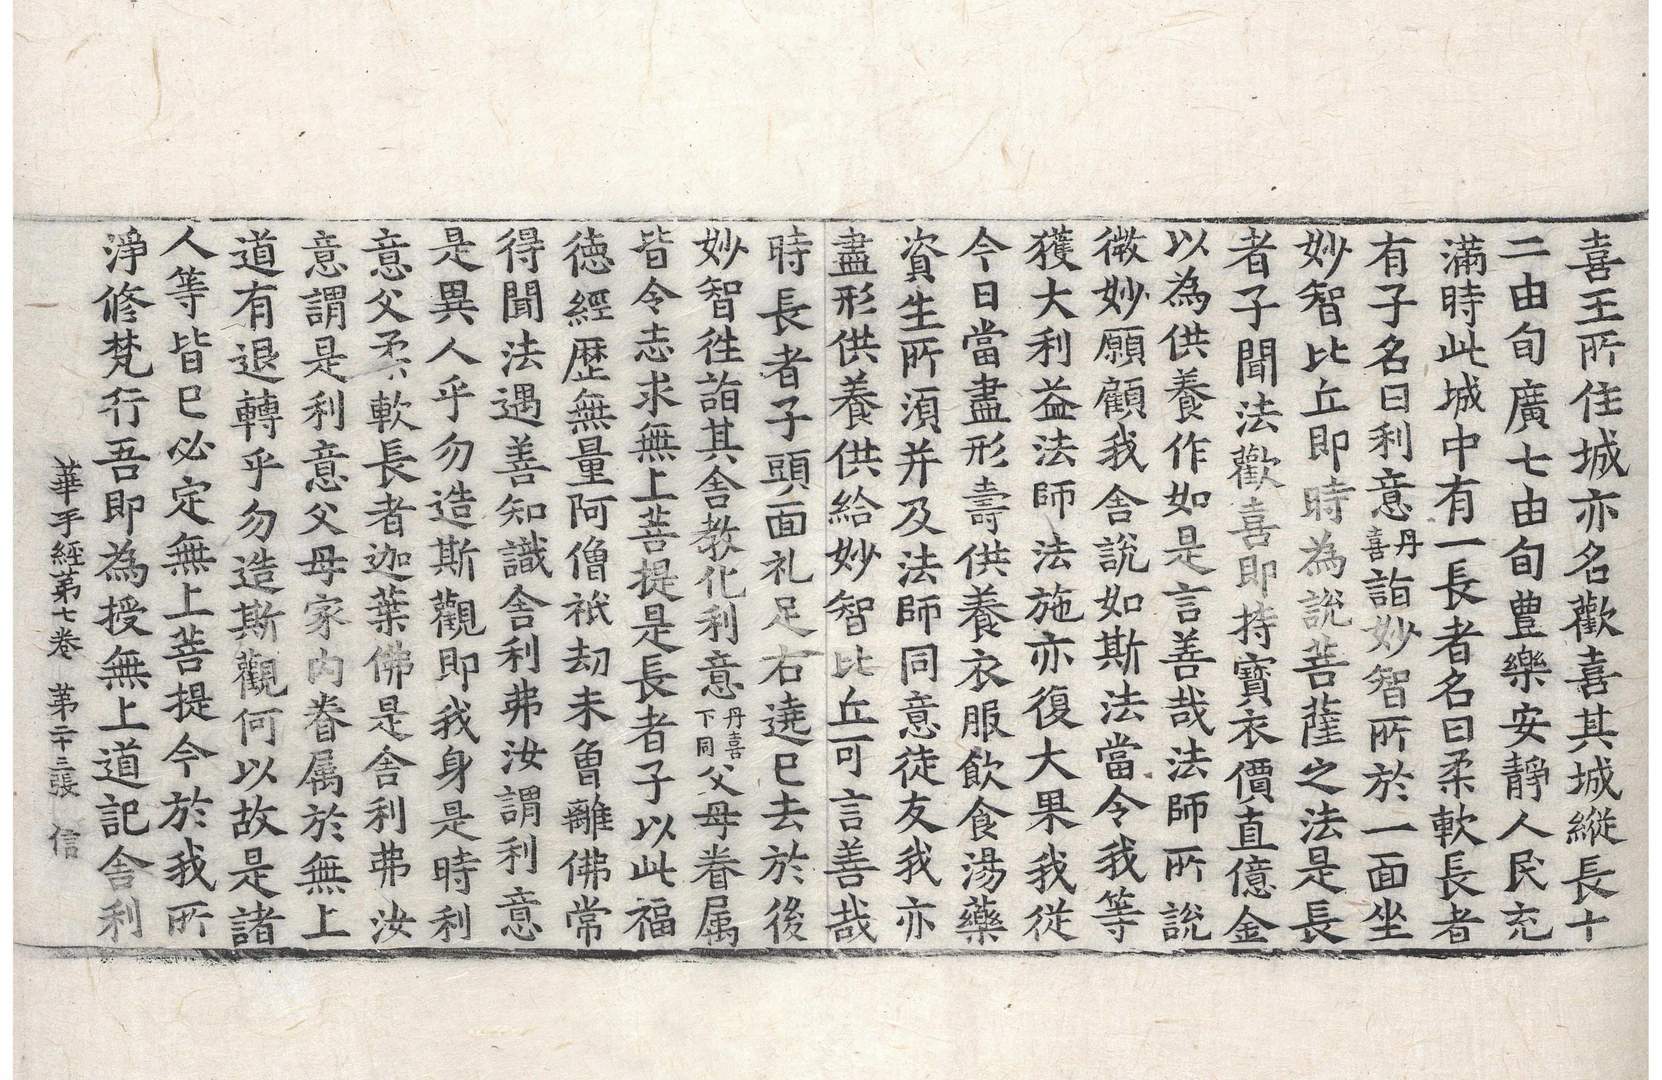 喜王所住城亦名歡喜其城縱長十
二由旬廣七由旬豊樂安靜人民充
滿時此城中有一長者名曰柔軟長者
有子名曰利意丹喜詣妙智所於一面坐
妙智比丘即時為說菩薩之法是長
者子聞法歡喜即持寶衣價直億金
以為供養作如是言善哉法師所說
微妙願顧我舍說如斯法當令我等
獲大利益法師法施亦復大果我從
今日當盡形壽供養衣服飲食湯藥
資生所湏并及法師同意徒友我亦
盡形供養供給妙智比丘可言善哉
時長者子頭面礼足右遶已去於後
妙智徃詣其舍教化利意丹喜下同父母眷属
皆令志求無上菩提是長者子以此福
徳經歴無量阿僧祇劫未曾離佛常
得聞法遇善知識舍利弗汝謂利意
是異人乎勿造斯觀即我身是時利
意父柔軟長者迦葉佛是舍利弗汝
意謂是利意父母家内眷属於無上
道有退轉乎勿造斯觀何以故是諸
人等皆已必定無上菩提今於我所
淨修梵行吾即為授無上道記舍利
華手經第七卷 第二十三張 信